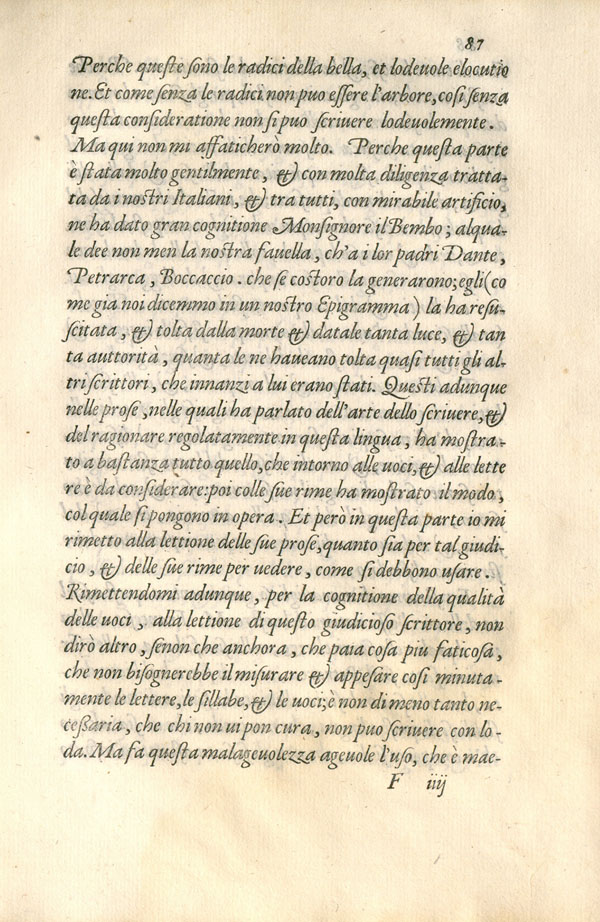 87
Perche queste sono le radici della bella, et lodeuole elocutio
ne. Et come senza le radici non puo essere l'arbore, cosi senza
questa consideratione non si puo scriuere lodeuolemente.
Ma qui non mi affaticherò molto. Perche questa parte
è stata molto gentilmente, & con molta diligenza tratta-
ta da i nostri Italiani, & tra tutti, con mirabile artificio,
ne ha dato gran cognitione Monsignore il Bembo; alqua-
le dee non men la nostra fauella, ch'a i lor padri Dante,
Petrarca, Boccaccio. che se costoro la generarono; egli (co
me gia noi dicemmo in un nostro Epigramma) la ha resu-
scitata, & tolta dalla morte & datale tanta luce, & tan
ta auttorità, quanta le ne haueano tolta quasi tutti gli al-
tri scrittori, che innanzi a lui erano stati. Questi adunque
nelle prose, nelle quali ha parlato dell'arte dello scriuere, &
del ragionare regolatamente in questa lingua, ha mostra-
to a bastanza tutto quello, che intorno alle uoci, & alle lette
re è da considerare: poi colle sue rime ha mostrato il modo,
col quale si pongono in opera. Et però in questa parte io mi
rimetto alla lettione delle sue prose, quanto sia per tal giudi-
cio, & delle sue rime per uedere, come si debbono usare.
Rimettendomi adunque, per la cognitione della qualità
delle uoci, alla lettione di questo giudicioso scrittore, non
dirò altro, senon che anchora, che paia cosa piu faticosa,
che non bisognerebbe il misurare & appesare cosi minuta-
mente le lettere, le sillabe, & le uoci; è non di meno tanto ne-
cessaria, che chi non ui pon cura, non puo scriuere con lo-
da. Ma fa questa malageuolezza ageuole l'uso, che è mae-
F iiij